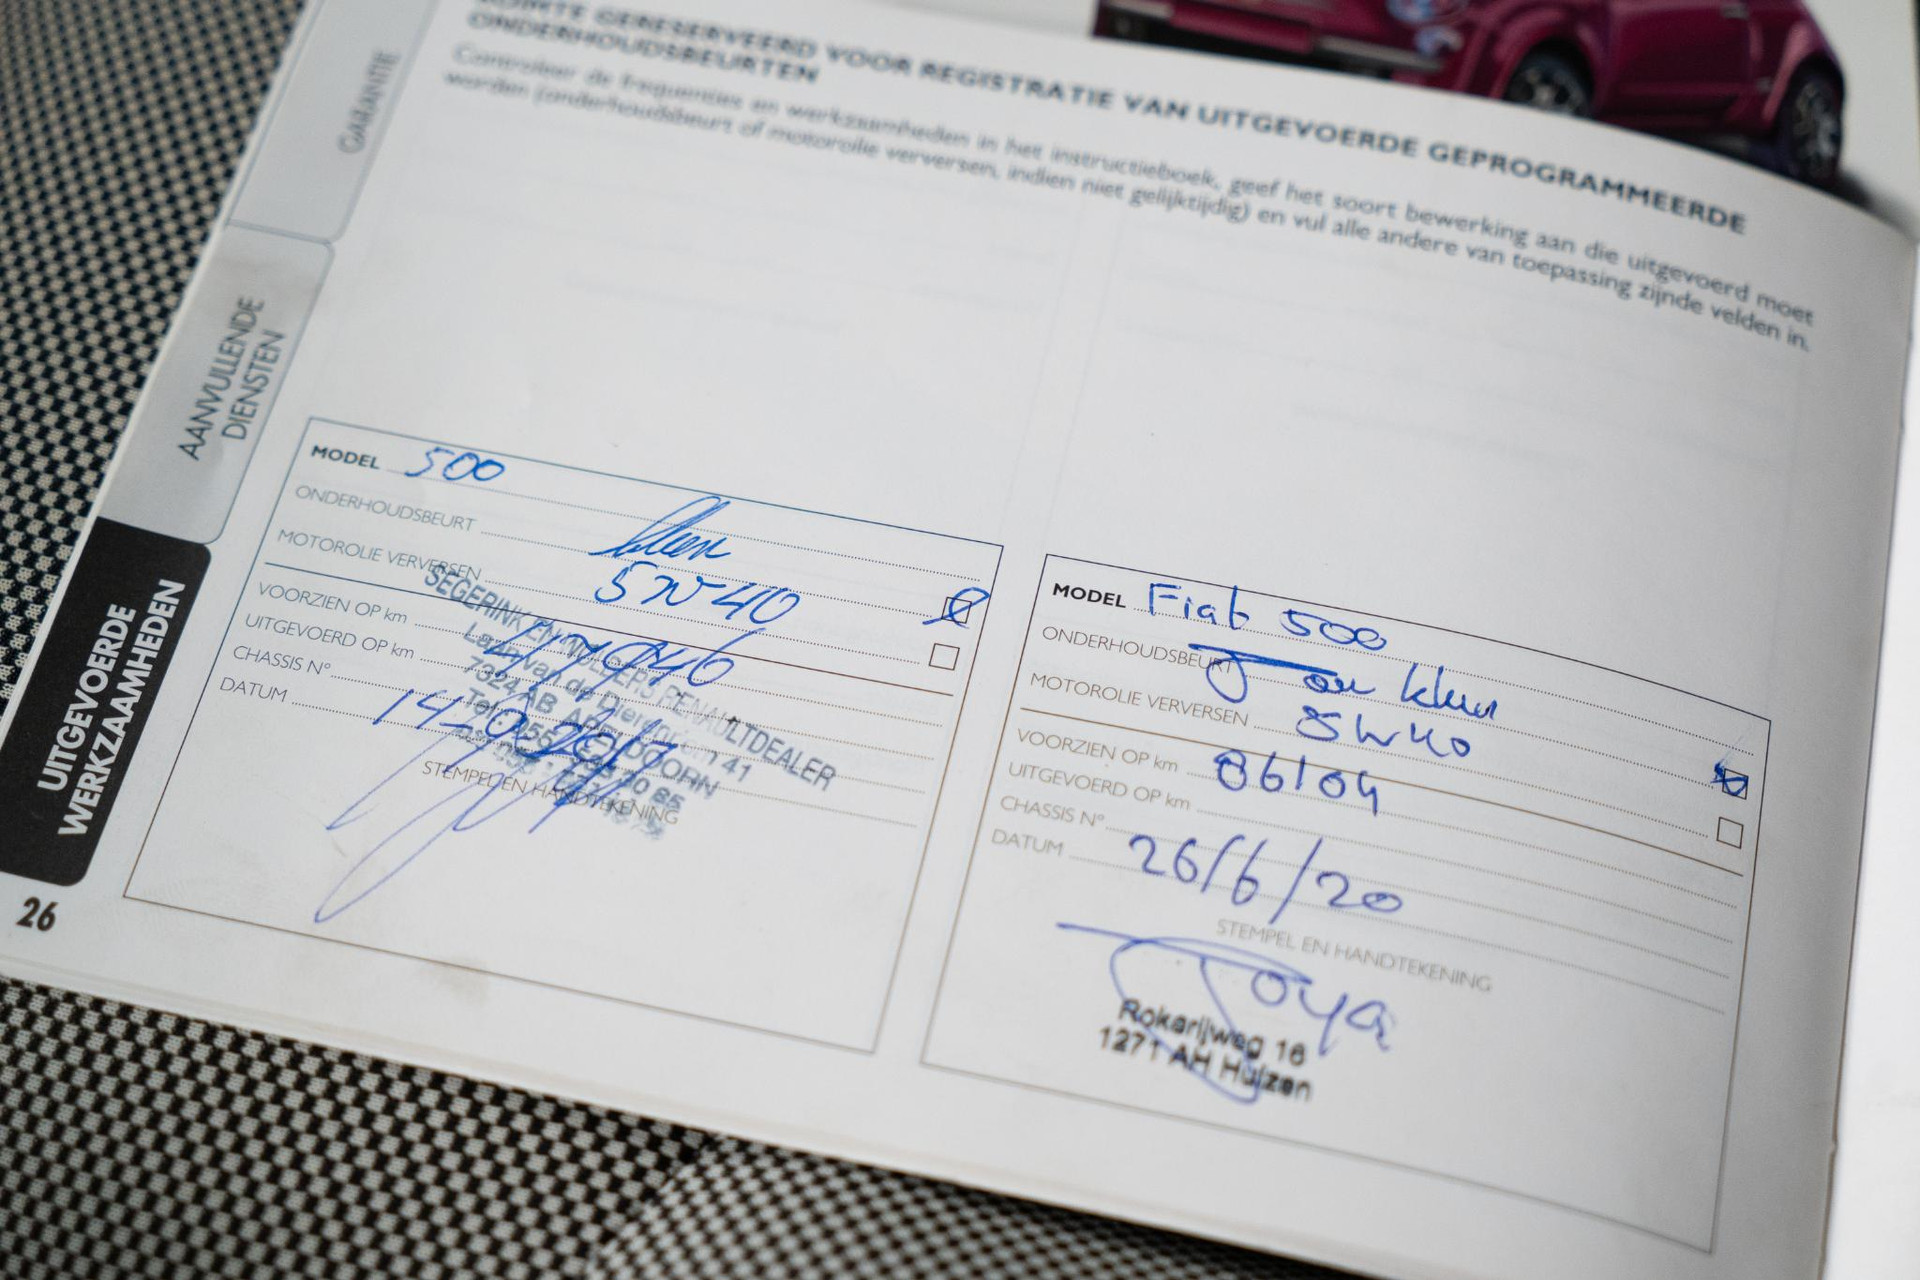 GARANTIE
AANVULLENDE
DIENSTEN
UITGEVOERDE
WERKZAAMHEDEN
26
RUIMTE GERESERVEERD VOOR REGISTRATIE VAN UITGEVOERDE GEPROGRAMMEERDE
ONDERHOUDSBEURTEN
Controleer de frequenties en werkzaamheden in het instructieboek, geef het soort bewerking aan die uitgevoerd moet
worden (onderhoudsbeurt of motorolie verversen, indien niet gelijktijdig) en vul alle andere van toepassing zijnde velden in.
MODEL 500
ONDERHOUDSBEURT
MOTOROLIE VERVERSEN 5W40
VOORZIEN OP km
UITGEVOERD OP km
CHASSIS N°
DATUM
SEGERINK EN MOLDERS RENAULTDEALER
Laan van de Dierenriem 41
7324 AB APELDOORN
STEMPEL EN HANDTEKENING
MODEL Fiat 500
ONDERHOUDSBEURT
MOTOROLIE VERVERSEN 5W40
VOORZIEN OP km 86104
UITGEVOERD OP km
CHASSIS N°
DATUM 26/6/20
STEMPEL EN HANDTEKENING
Rokerijweg 16
1271 AH Huizen